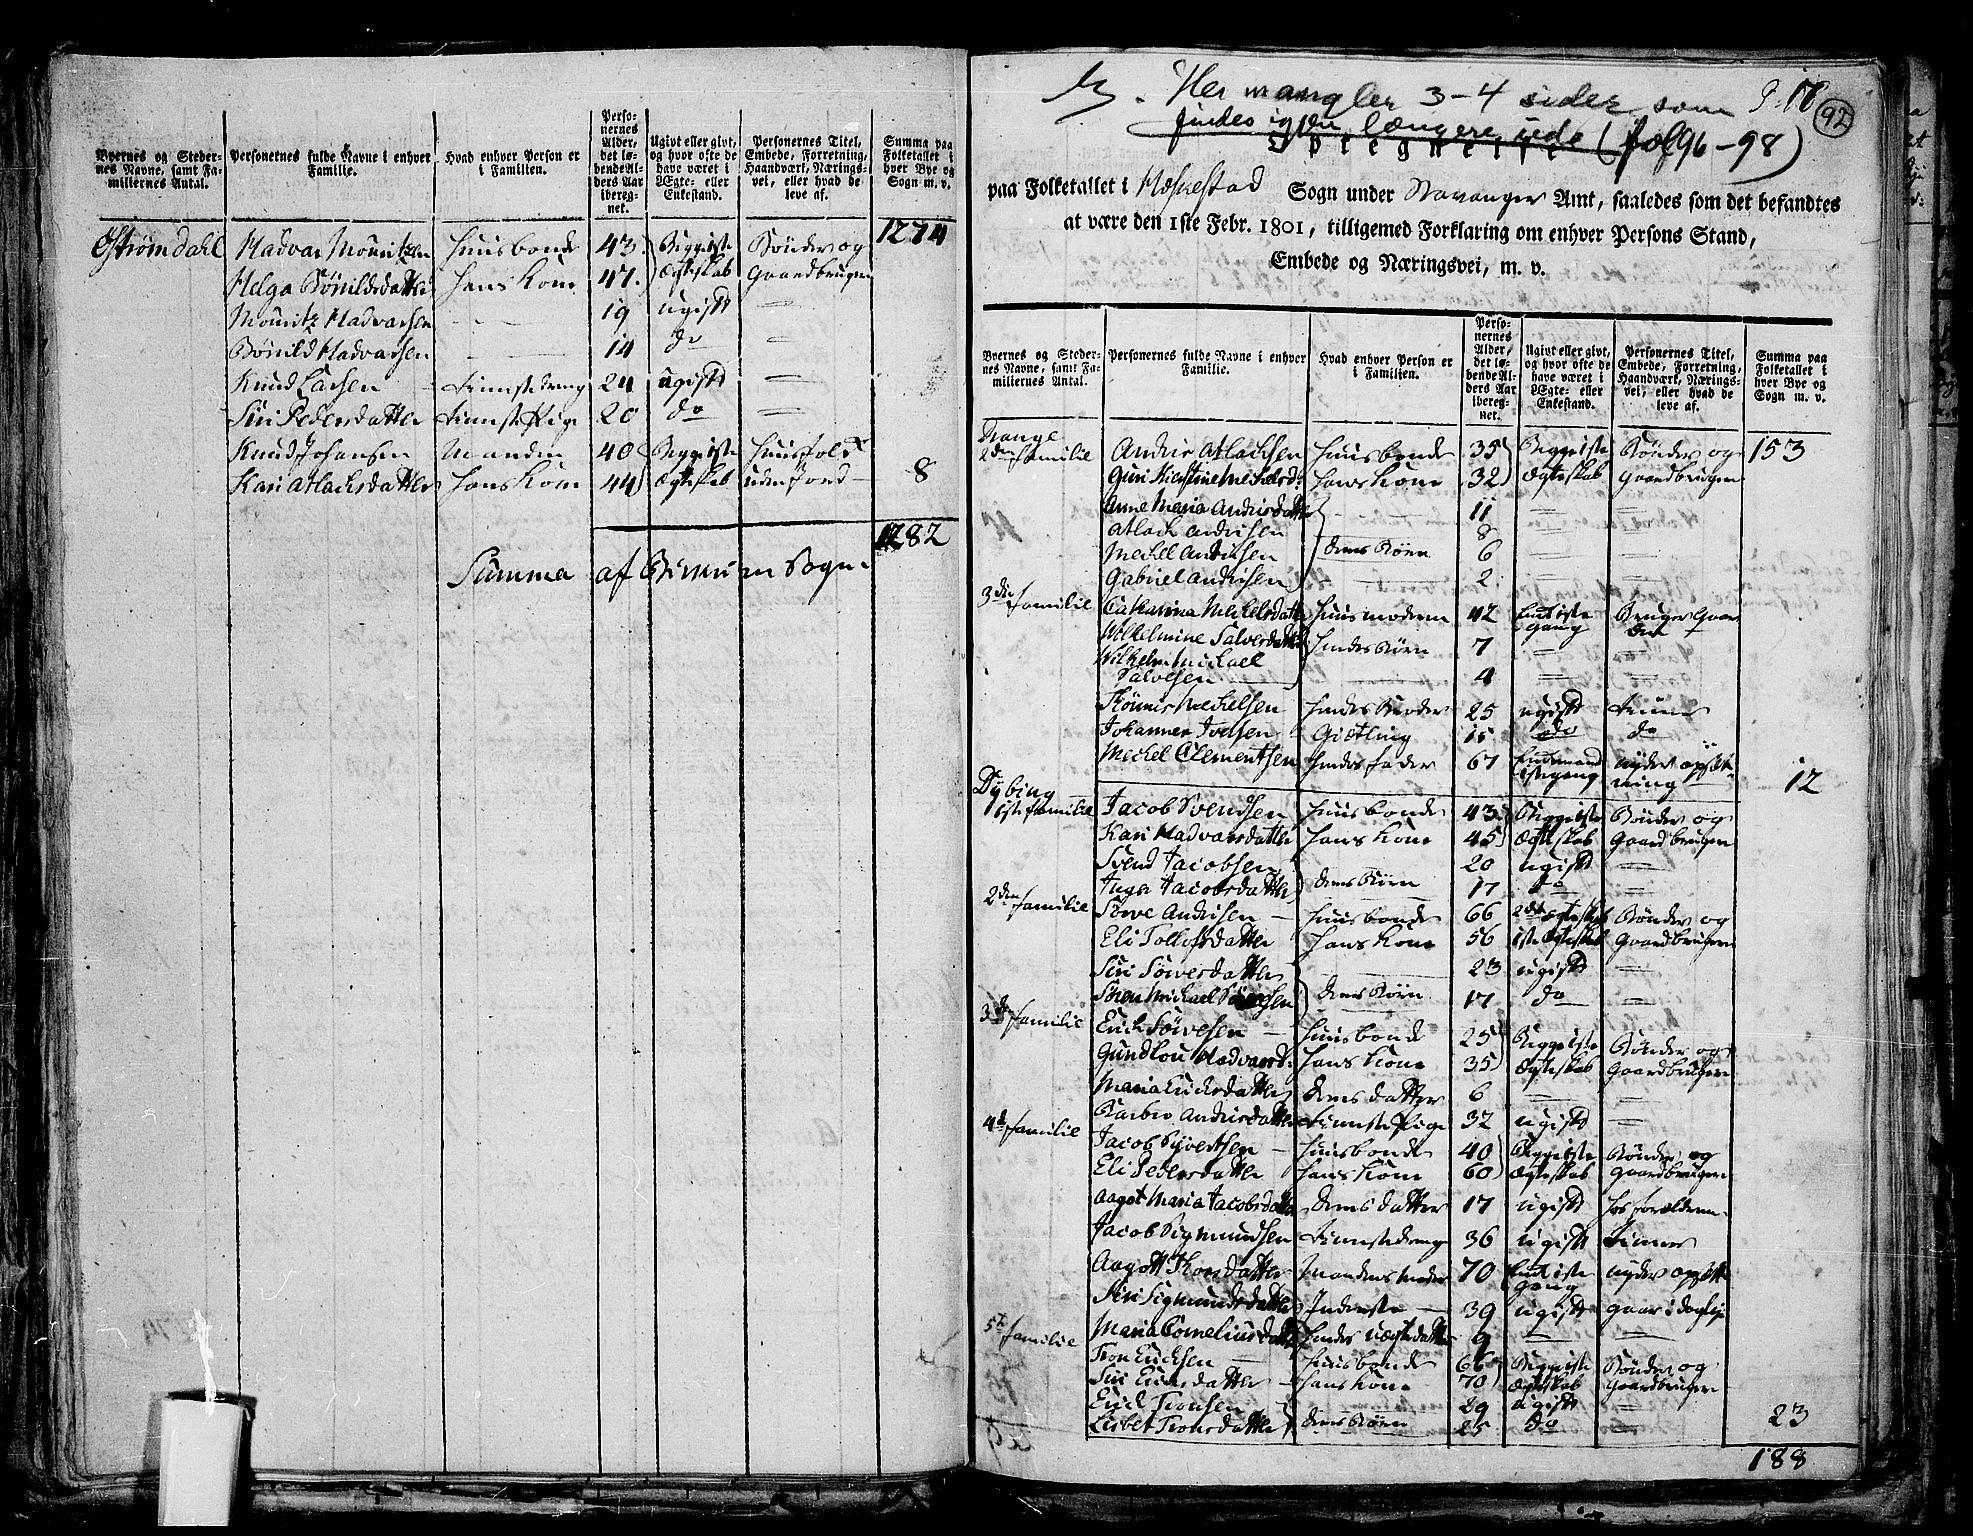 Byernes og Steder-
nes Navne, samt Fa-
miliernes Antal.
Personernes fulde Navne i enhver
Familie.
Hvad enhver Person er
i Familien.
Perso-
nernes
Alder,
det lø-
bende Al-
ders Aar
iberegnet.
Ugivt eller givt,
og hvor ofte de
have været i
Ægte- eller
Enkestand.
Personernes Titel,
Embede, Forretning,
Haandværk, Nærings-
vei, eller hvad de
leve af.
Summa paa
Folketallet i
hver Bye og
Sogn m. v.
1274
Østrømdahl Hadvar Mouritzen Huusbonde 43 Begge 1ste Bonde og
Helga Bønildsdatter Hans Kone 47 Ægteskab Gaardbruger
Mouritz Hadvarsen — 19 ugift —
Bønild Hadvarsen — 14 do —
Knud Larsen Tienestedreng 24 ugift —
Siri Pedersdatter Tieneste Pige 20 do —
Knud Johansen Manden 40 Begge 1ste Huusfolk
Kari Atlacksdatter Hans Kone 44 Ægteskab uden Jord — 8
1282
Summa af Sogn
NB. Her mangler 3-4 sider som
findes igjen længere ude (fol 96-98)
P. 17
92
paa Folketallet i Heskestad Sogn under Stavanger Amt, saaledes som det befandtes
at være den 1ste Febr. 1801, tilligemed Forklaring om enhver Persons Stand,
Embede og Næringsvei, m. v.
Byernes og Steder-
nes Navne, samt Fa-
miliernes Antal.
Personernes fulde Navne i enhver
Familie.
Hvad enhver Person er
i Familien.
Perso-
nernes
Alder,
det lø-
bende Al-
ders Aar
iberegnet.
Ugivt eller givt,
og hvor ofte de
have været i
Ægte- eller
Enkestand.
Personernes Titel,
Embede, Forretning,
Haandværk, Nærings-
vei, eller hvad de
leve af.
Summa paa
Folketallet i
hver Bye og
Sogn m. v.
2den familie Andris Atlacksen Huusbonde 35 Begge 1ste Bonde og 153
Guri Kierstine Mechelsd: Hans Kone 32 Ægteskab Gaardbruger
Anne Maria Andrisdatter — 11 — —
Atlack Andrisen 8 —
Mechel Andrisen deres Børn 6 — —
Gabriel Andrisen — 2 — —
3die familie Catharina Mechelsdatter Huusmoderen 42 Enke 1ste Bruger Gaar
Gang den
Wilhelmine Salvesdatter Hendes Børn 7 — —
Wilhelm Michael
Salvesen — 4 — —
Tønnes Mechelsen Hendes Broder 25 ugift tiener
Johannes Iversen Gietling 15 do do
Mechel Clementsen Hendes fader 67 Enkemand nyder opsæt-
1ste gang ning 12
Dybing
1ste familie Jacob Svendsen Huusbonde 43 Begge 1ste Bonde og
Kari Hadvarsdatter Hans Kone 45 Ægteskab Gaardbruger
Svend Jacobsen 20 ugift —
Inger Jacobsdatter deres Børn 17 do —
2den familie Sørve Andrisen — Huusbonde 66 2det Ægteskab Bonde og
Eli Tollefsdatter Hans Kone 56 1ste Ægteskab Gaardbruger
Siri Sørvesdatter — 23 ugift —
Søren Michael Sørvesen deres Børn 17 do —
3die familie Erich Sørvesen — Huusbonde 25 Begge 1ste Bonde og
Gundlou Hadvarsd: Hans Kone 35 Ægteskab Gaardbruger
Maria Erichsdatter deres datter 6 — —
Barbro Andrisdatter Tieneste Pige 32 ugift —
4de familie Jacob Sivertsen — Huusbonde 40 Begge 1ste Bonde og
Eli Pedersdatter Hans Kone 60 Ægteskab Gaardbruger
Aagot Maria Jacobsdatter deres datter 17 ugift hos forældrene
Jacob Sigmundsen Tienestedreng 36 ugift tiener
Aagott Thorsdatter Mandens Moder 70 Enke 1ste nyder opsæt
gang
Siri Sigmundsdatter Inderste — 39 ugift gaar i dagleje
Maria Corneliusdatter Hendes uægte datter 9 — —
5te familie Tron Erichsen — Huusbonde 66 Begge 1ste Bonde og
Siri Erichsdatter — Hans Kone 70 Ægteskab Gaardbruger
Erich Tronsen 29 ugift —
Lisbet Tronsdatter deres Børn 25 do — 23
188